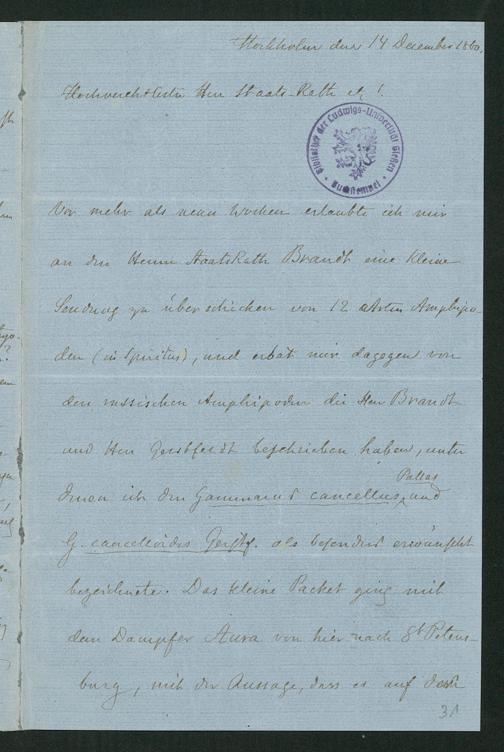 Stockholm den 14 December 1860.
Hochverehrtester Herr Staats-Rath etc !
Bibliothek der Ludwigs-Universität Gießen
Vor mehr als neun Wochen erlaubte ich mir
an den Herrn Staats Rath Brandt eine kleine
Sendung zu überschicken von 12 Arten Amphipo-
den (in Spiritus), und erbat mir dagegen von
den russischen Amphipoden die Herr Brandt
und Herr Gerstfeldt beschrieben haben, unter
denen ich den Gammarus cancellus Pallas und
G. cancelloides Gerstf. als besonders erwünscht
bezeichnete. Das kleine Packet ging mit
dem Dampfer Aura von hier nach St Peters-
burg, mit der Aussage, dass es auf
31